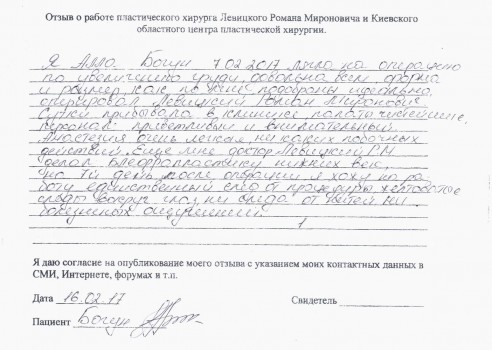 Отзыв о работе пластического хирурга Левицкого Романа Мироновича и Киевского
областного центра пластической хирургии.
Я Алла Богун 7 02 2017 легла на операцию
по увеличению груди, довольна всем, форма
и размер, как по мне подобраны идеально.
оперировал Левицкий Роман Миронович.
Сутки прибывала в клинике палаты
персонал приветливый и внимательный.
Анастезия очень легкая никаких побочных
действий. Еще мне доктор Левицкий Р М
делал блефоропластику нижних век.
На день после операции я хожу на ра
боту единственный след от процедуры желтоватые
следы вокруг глаз, ни следа от нитей ни
ощущений.
Я даю согласие на опубликование моего отзыва с указанием моих контактных данных в
СМИ, Интернете, форумах и т.п.
Дата 16.02.17 Свидетель
Пациент Богун